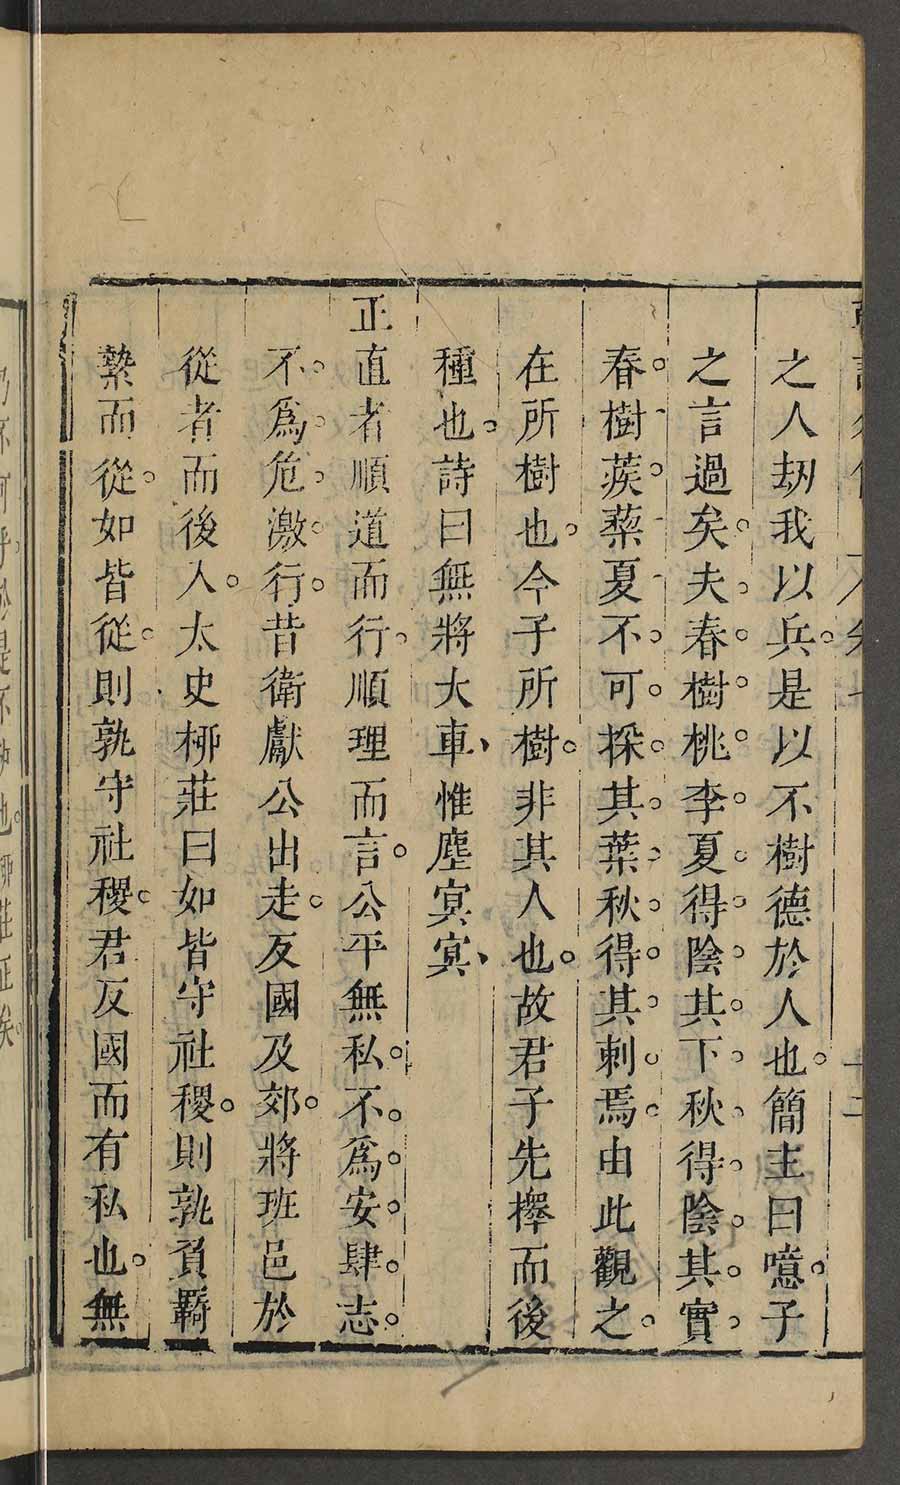 之人劫我以兵。是以不樹德於人也。簡主曰噫。子
之言過矣。夫春樹桃李。夏得陰其下。秋得陰其實。
春樹蒺蔾。夏不可採其葉。秋得其刺焉。由此觀之。
在所樹也。今子所樹。非其人也。故君子先擇而後
種也。詩曰無將大車、惟塵冥冥、
正直者順道而行。順理而言。公平無私。不爲安肆志。
不爲危激行。昔衛獻公出走。反國及郊。將班邑於
從者而後入。太史桺莊曰如皆守社稷。則孰負羈
縶而從。如皆從。則孰守社稷。君反國而有私也。無